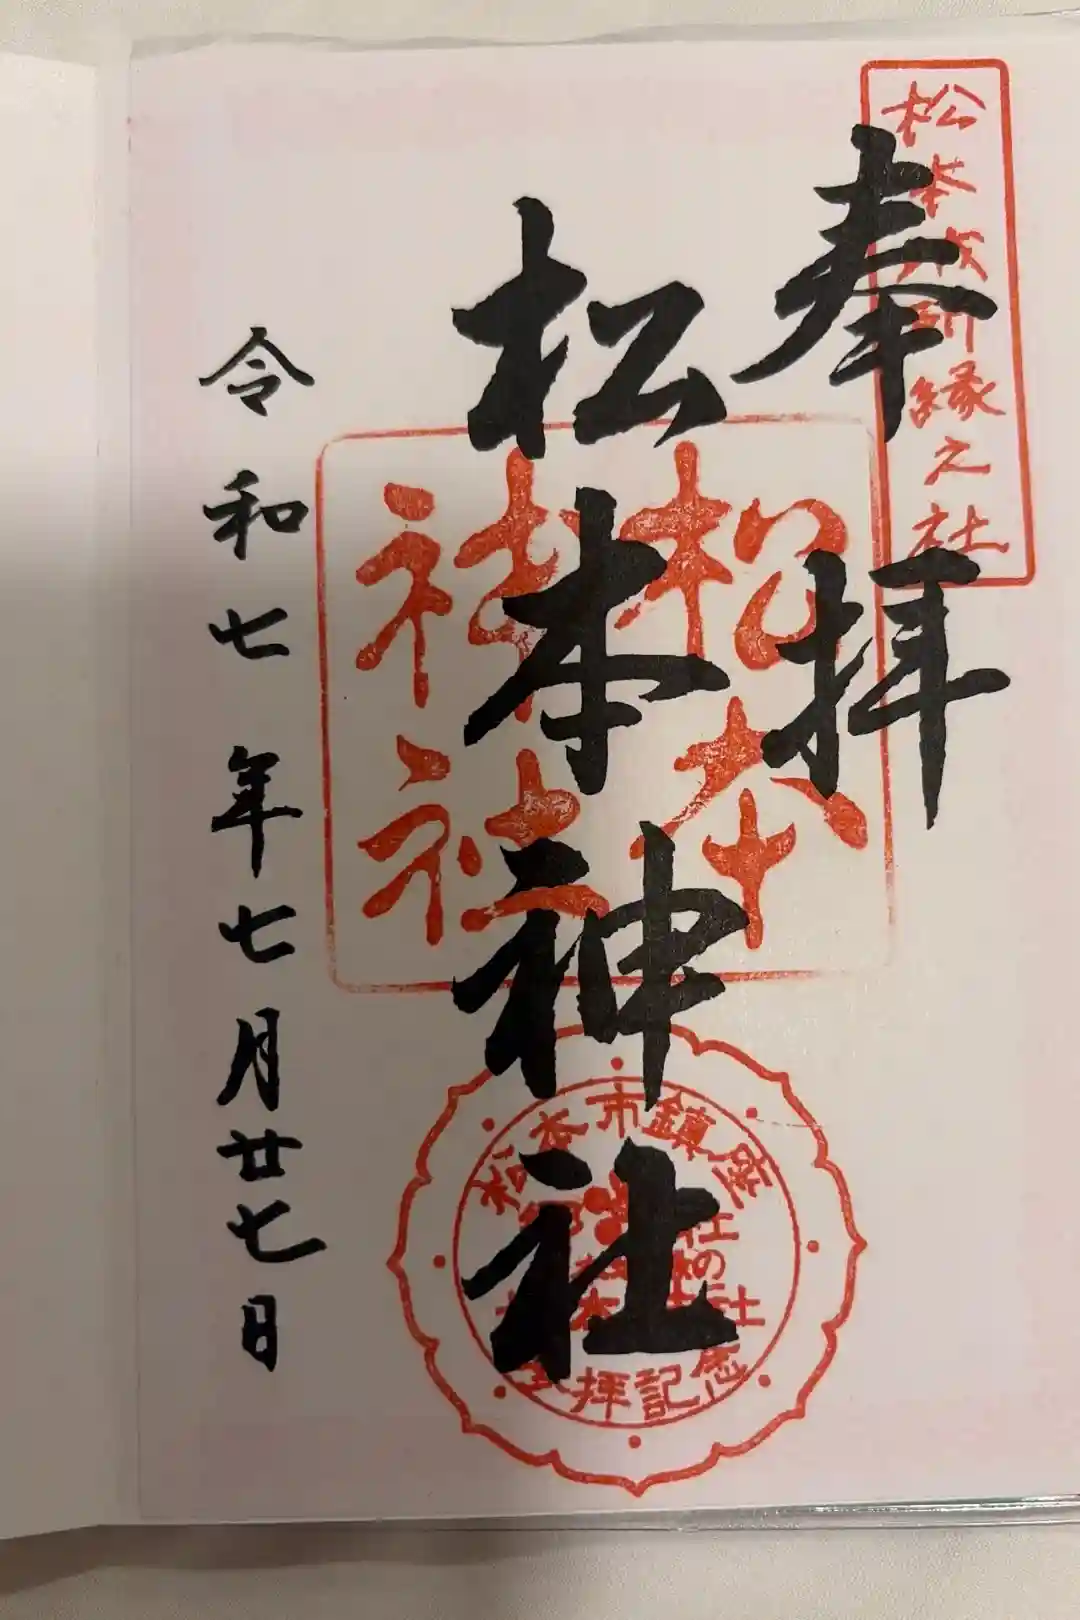 奉拝
松本城所縁之社
松本神社
松本
神社
松本市鎮座
社
の
拝記念
令和七年七月廿七日